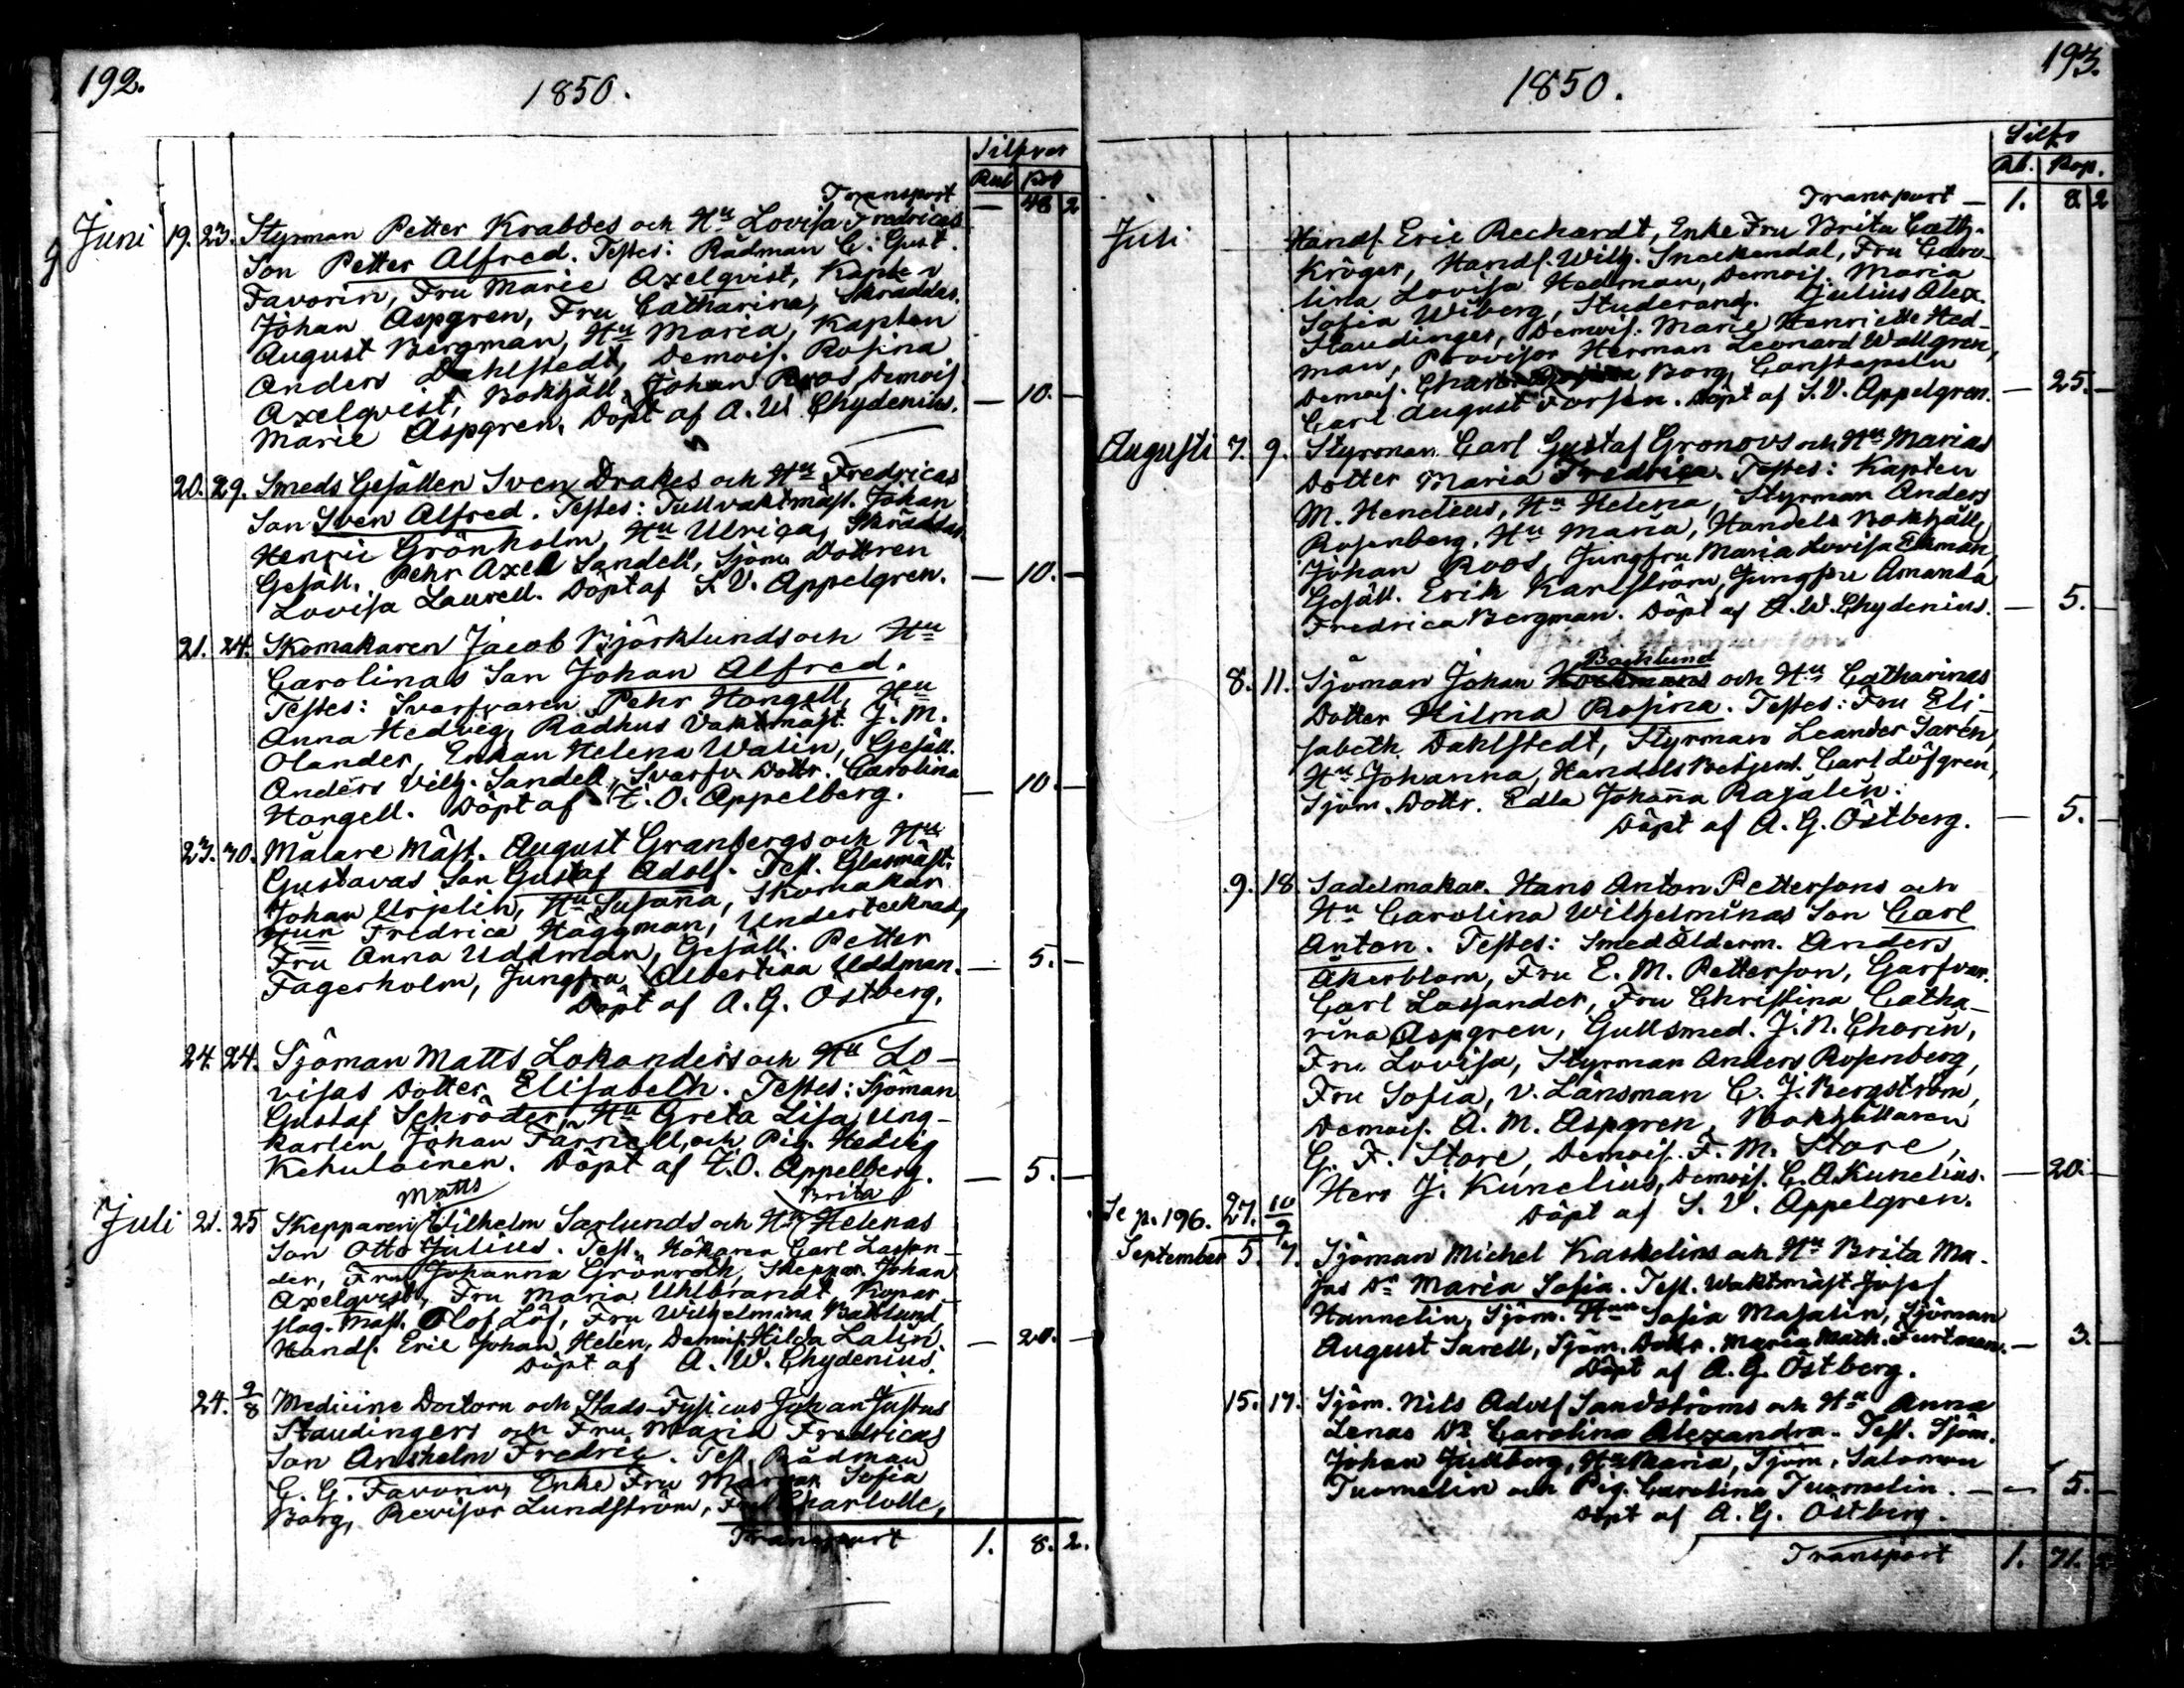 192.
1850.
Silfver
Rub Kop
Transport — 48 2
Juni 19. 23. Styrman Petter Krabbes och Hu Lovisa Fredricas
Son Petter Alfred. Testes: Rådman C. Gust.
Favorin, Fru Marie Axelqvist, Kapten
Johan Aspgren, Fru Catharina, Skräddar.
August Bergman, Hu Maria, Kapten
Anders Dahlstedt, Demois. Rosina
Axelqvist, Bokhåll. Johan Roos, Demois
Marie Aspgren. Döpt af A. W. Chydenius. — 10. —
20. 29. Smeds Gesällen Sven Drakes och Hu Fredricas
Son Sven Alfred. Testes: Tullvaktmäst. Johan
Henric Grönholm, Hu Ulrica, Skräddar
Gesäll. Pehr Axel Sandell, Sjöm. Dottren
Lovisa Laurell. Döpt af S. V. Appelgren. — 10. —
21. 24. Skomakaren Jacob Björklunds och Hu
Carolinas Son Johan Alfred.
Testes: Svarfvaren Pehr Hongell, Hu
Anna Hedvig, Rådhus Vaktmäst. J. M.
Olander, Enkan Helena Walin, Gesäll.
Anders Vilh. Sandell, Svarfv. Dottr. Carolina
Hongell. Döpt af Z. O. Appelberg. — 10. —
23. 30. Målare Mäst. August Granbergs och Hu
Gustavas Son Gustaf Adolf. Test. Glasmäst.
Johan Urselin, Hu Susanna, Skomakar
Hun Fredrica Häggman, Undertecknad,
Fru Anna Uddman, Gesäll. Petter
Fagerholm, Jungfru Albertina Uddman. — 5. —
Döpt af A. G. Östberg.
24. 24. Sjöman Matts Lokanders och Hu Lo-
visas Dotter Elisabeth. Testes: Sjöman
Gustaf Schröder, Hu Greta Lisa, Ung-
karlen Johan Färnell, och Pig. Hedvig
Kehulainen. Döpt af Z. O. Appelberg. — 5. —
Matts Brita
Juli 21. 25 Skepparen Wilhelm Sarlunds och Hu Helenas
Son Otto Julius. Test. Hökaren Carl Lassan-
der, Fru Johanna Grönroth, Skeppar. Johan
Axelqvist, Fru Maria Uhlbrandt, Kopar-
slag. Mäst. Olof Löf, Fru Wilhelmina Backlund,
Handl. Eric Johan Helen, Demois. Hilda Lalin. — 20. —
Döpt af A. W. Chydenius.
24. 2/8 Medicine Doctorn och Stads-Fysicus Johan Justus
Staudingers och Fru Maria Fredricas
Son Anshelm Fredric. Test. Rådman
C. G. Favorin, Enke Fru Sofia
Borg, Revisor Lundström, Fru Charlotte,
Transport 1. 8. 2.
193.
1850.
Silfv
Rb. Kop.
Transport — 1. 8 2
Juli Handl. Eric Rechardt, Enke Fru Brita Cath.
Kröger, Handl. Wilh. Sneckendal, Fru Caro-
lina Lovisa Hedman, Demois. Maria
Sofia Wiberg, Studerand. Julius Alex.
Staudinger, Demois. Marie Henriette Hed-
man, Provisor Herman Leonard Wallgren,
Demois. Borg, Canstapeln
Carl August Forsen. Döpt af S. V. Appelgren. — 25. —
Augusti 7. 9. Styrman Carl Gustaf Gronovs och Hu Marias
Dotter Maria Fredrica. Testes: Kapten
M. Hendelius, Hu Helena, Styrman Anders
Rosenberg, Hu Maria, Handels Bokhåll.
Johan Roos, Jungfru Maria Lovisa Ekman,
Gesäll. Erik Karlström, Jungfru Amanda
Fredrica Bergman. Döpt af A. W. Chydenius. — 5. —
Backlund
8. 11. Sjöman Johan och Hu Catharinas
Dotter Hilma Rosina. Testes: Fru Eli-
sabeth Dahlstedt, Styrman Leander Saren,
Hu Johanna, Handels Betjent. Carl Löfgren,
Sjöm. Dottr. Edla Johanna Rajalin.
Döpt af A. G. Östberg. — 5. —
9. 18 Sadelmakar. Hans Anton Pettersons och
Hu Carolina Wilhelminas Son Carl
Anton. Testes: Smed Ålderm. Anders
Åkerblom, Fru E. M. Petterson, Garfvar.
Carl Lassander, Fru Christina Catha-
rina Aspgren, Gullsmed. J. N. Chorin,
Fru Lovisa, Styrman Anders Rosenberg,
Fru Sofia, v. Länsman C. J. Bergström,
Demois. A. M. Aspgren, Bokhållaren
G. F. Store, Demois. F. M. Store,
Herr J. Kunelius, Demois. C. A. Kunelius. — 20. —
Döpt af S. V. Appelgren.
Se p. 196. 27. 10/9
September 5. 7. Sjöman Michel Kaskelins och Hu Brita Ma-
jas Dr Maria Sofia. Test. Waktmäst. Josef
Hannelin, Sjöm. Hun Sofia Masalin, Sjöman
August Sarell, Sjöm. Dottr. Maria Math. Furtman. — 3. —
Döpt af A. G. Östberg.
15. 17. Sjöm. Nils Adolf Sandströms och Hu Anna
Lenas Dr Carolina Alexandra. Test. Sjöm.
Johan Jullborg, Hu Maria, Sjöm. Salomon
Tuomelin och Pig. Carolina Tuomelin. — 5. —
Döpt af A. G. Östberg.
Transport 1. 71.